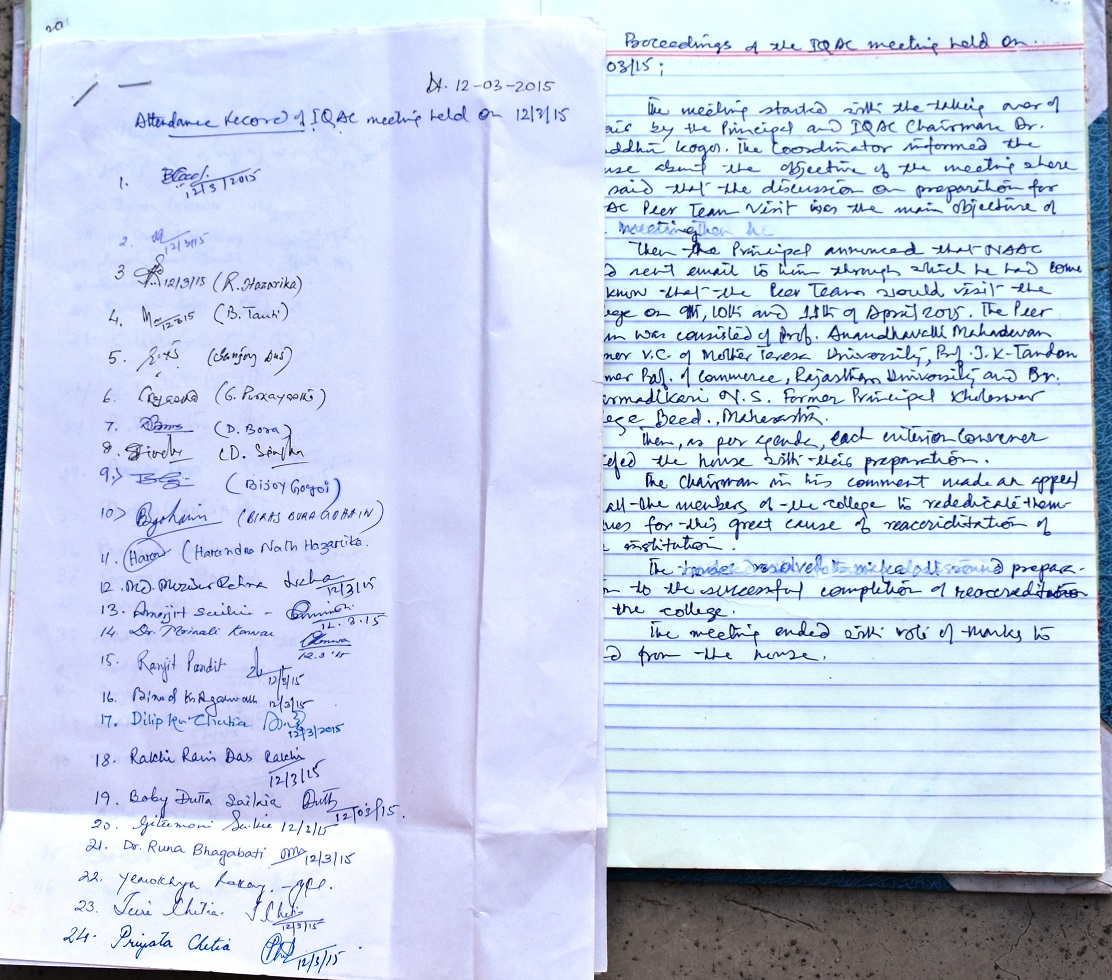 20
Dt. 12-03-2015
Attendance Record of IQAC meeting held on 12/3/15
1. 12/3/2015
2. 12/3/15
3 12/3/15 (R. Hazarika)
4. 12.3.15 (B. Tanti)
5. (Sanjoy Das)
6. (G. Purkayastha)
7. (D. Bora)
8. (D. Singha)
9.> (Bijoy Gogoi)
10> (BIKAS BURAGOHAIN)
11. (Harendra Nath Hazarika.
12. Md. 12/3/15
13. Amarjit Saikia - 12.3.15
14. Dr. Moinali Konwar 12.3.15
15. Ranjit Pandit 12/3/15
16. Binod Kr Agarwalla 12/3/15
17. Dilip Kr Chutia 12/3/2015
18. Rakhi Rani Das Rakhi 12/3/15
19. Boby Dutta Saikia Dutta 12/03/15.
20. Gitumoni Saikia 12/3/15
21. Dr. Runa Bhagabati 12/3/15
22.
23. Chetia. 12/3/15
24. Priyata Chetia 12/3/15
Proceedings of the IQAC meeting held on
03/15;
The meeting started with the taking over of
air by the Principal and IQAC Chairman Dr.
Gogoi. The Coordinator informed the
use about the objective of the meeting where
said that the discussion on preparation for
AC Peer Team Visit was the main objective of
meeting
Then the Principal announced that NAAC
d sent email to him through which he had come
know that the Peer Team would visit the
ege on 9th, 10th and 11th of April 2015. The Peer
m was consisted of Prof. Anandhavalli Mahadevan
mer V.C. of Mother Teresa University, Prof. J.K. Tandon
mer Prof. of Commerce, Rajasthan University and Dr.
armadikari N.S. Former Principal Kholeswar
ege Beed, Maharastra.
Then, as per agenda, each criterion Convener
efed the house with their preparation.
The Chairman in his comment made an appeal
all the members of the college to rededicate them-
ves for this great cause of reaccriditation of
institution.
The house resolved to make all round prepara-
n to the successful completion of reaccreditation
the college.
The meeting ended with vote of thanks to
d from the house.